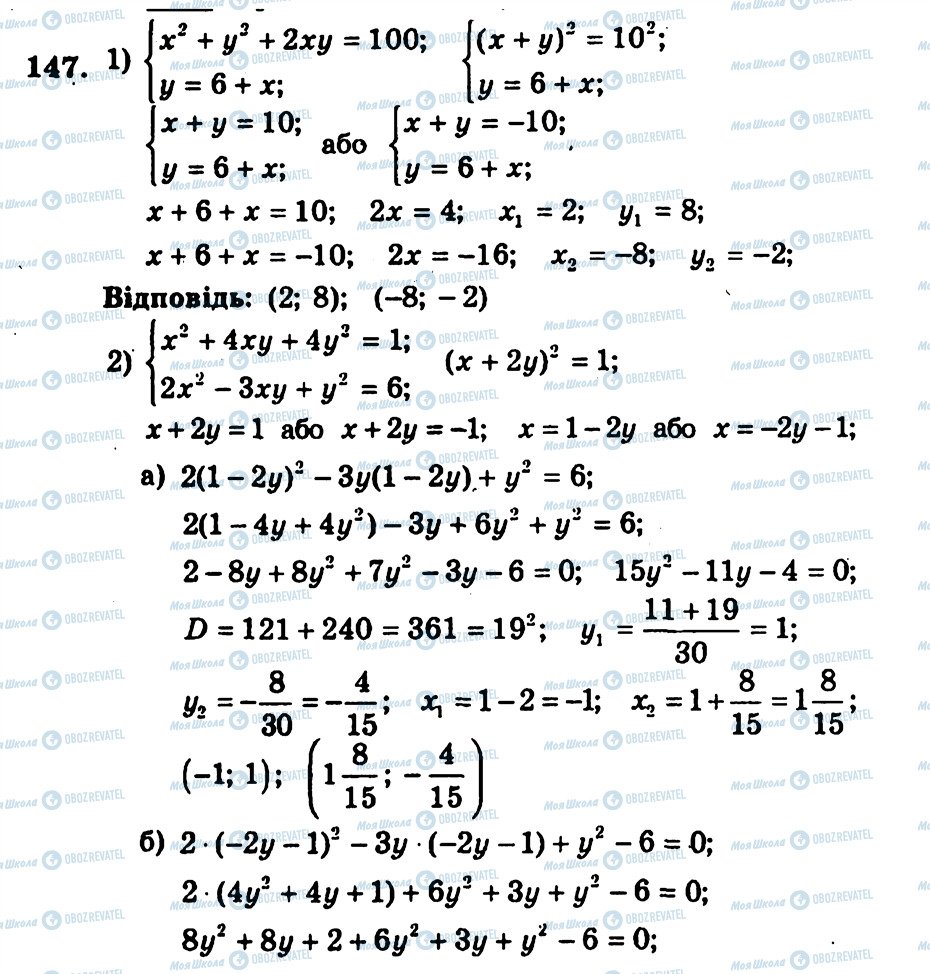 147. 1) { x² + y² + 2xy = 100; { (x + y)² = 10²;
y = 6 + x; y = 6 + x;
{ x + y = 10; або { x + y = –10;
y = 6 + x; y = 6 + x;
x + 6 + x = 10; 2x = 4; x₁ = 2; y₁ = 8;
x + 6 + x = –10; 2x = –16; x₂ = –8; y₂ = –2;
Відповідь: (2; 8); (–8; – 2)
2) { x² + 4xy + 4y² = 1; (x + 2y)² = 1;
2x² – 3xy + y² = 6;
x + 2y = 1 або x + 2y = –1; x = 1 – 2y або x = –2y – 1;
а) 2(1 – 2y)² – 3y(1 – 2y) + y² = 6;
2(1 – 4y + 4y²) – 3y + 6y² + y² = 6;
2 – 8y + 8y² + 7y² – 3y – 6 = 0; 15y² – 11y – 4 = 0;
D = 121 + 240 = 361 = 19²; y₁ = (11 + 19)/30 = 1;
y₂ = –8/30 = –4/15; x₁ = 1 – 2 = –1; x₂ = 1 + 8/15 = 1 8/15;
(–1; 1); (1 8/15; –4/15)
б) 2 · (–2y – 1)² – 3y · (–2y – 1) + y² – 6 = 0;
2 · (4y² + 4y + 1) + 6y² + 3y + y² – 6 = 0;
8y² + 8y + 2 + 6y² + 3y + y² – 6 = 0;
Моя Школа OBOZREVATEL